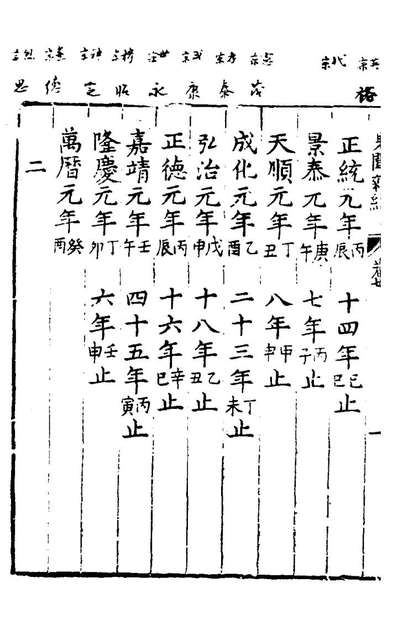 英宗 裕
代宗
憲宗 茂
孝宗 泰
武宗 康
世宗 永
穆宗 昭
神宗 定
宗 德
宗 思
見聞雜紀
正統元年丙辰 十四年己巳止
景泰元年庚午 七年丙子止
天順元年丁丑 八年甲申止
成化元年乙酉 二十三年丁未止
弘治元年戊申 十八年乙丑止
正德元年丙辰 十六年辛巳止
嘉靖元年壬午 四十五年丙寅止
隆慶元年丁卯 六年壬申止
萬曆元年癸酉
二